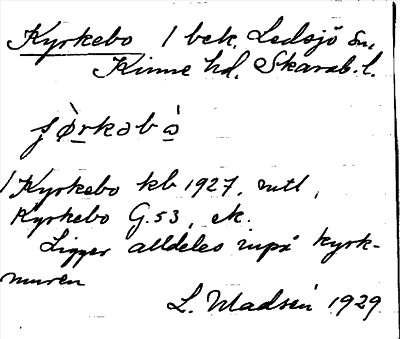 Kyrkebo 1 bek. Ledsjö sn,
Kinne hd. Skarab. l.
ʃɵ̀rkəbò
1/Kyrkebo kb 1927, mtl,
Kyrkebo G.53, ek.
Ligger alldeles inpå kyrk-
muren
L. Madsén 1929